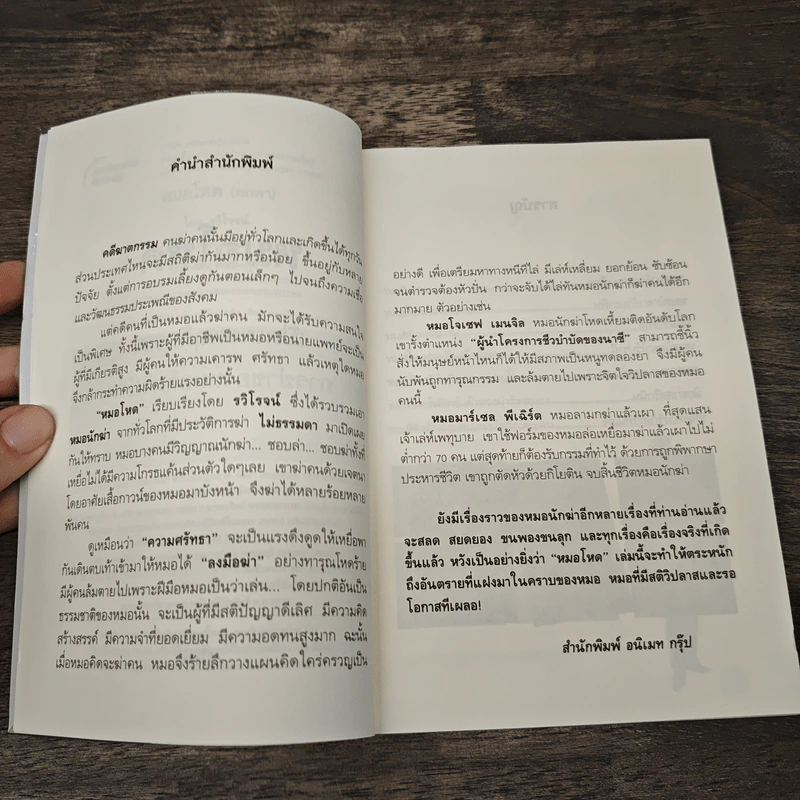 คำนำสำนักพิมพ์
คดีฆาตกรรม คนฆ่าคนนั้นมีอยู่ทั่วโลกและเกิดขึ้นได้ทุกวัน
ส่วนประเทศไหนจะมีสถิติฆ่ากันมากหรือน้อย ขึ้นอยู่กับหลาย
ปัจจัย ตั้งแต่การอบรมเลี้ยงดูกันตอนเล็กๆ ไปจนถึงความเชื่อ
และวัฒนธรรมประเพณีของสังคม
แต่คดีคนที่เป็นหมอแล้วฆ่าคน มักจะได้รับความสนใจ
เป็นพิเศษ ทั้งนี้เพราะผู้ที่มีอาชีพเป็นหมอหรือนายแพทย์จะเป็น
ผู้ที่มีเกียรติสูง มีผู้คนให้ความเคารพ ศรัทธา แล้วเหตุใดหมอ
จึงกล้ากระทำความผิดร้ายแรงอย่างนั้น
"หมอโหด" เรียบเรียงโดย รวิโรจน์ ซึ่งได้รวบรวมเอา
หมอนักฆ่า จากทั่วโลกที่มีประวัติการฆ่า ไม่ธรรมดา มาเปิดเผย
กันให้ทราบ หมอบางคนมีวิญญาณนักฆ่า... ชอบล่า... ชอบฆ่าทั้งที่
เหยื่อไม่ได้มีความโกรธแค้นส่วนตัวใดๆเลย เขาฆ่าคนด้วยเจตนา
โดยอาศัยเสื้อกาวน์ของหมอมาบังหน้า จึงฆ่าได้หลายร้อยหลาย
พันคน
ดูเหมือนว่า "ความศรัทธา" จะเป็นแรงดึงดูดให้เหยื่อพา
กันเดินตบเท้าเข้ามาให้หมอได้ "ลงมือฆ่า" อย่างทารุณโหดร้าย
มีผู้คนล้มตายไปเพราะฝีมือหมอเป็นว่าเล่น... โดยปกติอันเป็น
ธรรมชาติของหมอนั้น จะเป็นผู้ที่มีสติปัญญาดีเลิศ มีความคิด
สร้างสรรค์ มีความจำที่ยอดเยี่ยม มีความอดทนสูงมาก ฉะนั้น
เมื่อหมอคิดจะฆ่าคน หมอจึงร้ายลึกวางแผนคิดใคร่ครวญเป็น
อย่างดี เพื่อเตรียมหาทางหนีทีไล่ มีเล่ห์เหลี่ยม ยอกย้อน ซับซ้อน
จนตำรวจต้องหัวปั่น กว่าจะจับได้ไล่ทันหมอนักฆ่าก็ฆ่าคนได้อีก
มากมาย ตัวอย่างเช่น
หมอโจเซฟ เมนจิล หมอนักฆ่าโหดเหี้ยมติดอันดับโลก
เขารั้งตำแหน่ง "ผู้นำโครงการชีวบำบัดของนาซี" สามารถชี้นิ้ว
สั่งให้มนุษย์หน้าไหนก็ได้ให้มีสภาพเป็นหนูทดลองยา จึงมีผู้คน
นับพันถูกทารุณกรรม และล้มตายไปเพราะจิตใจวิปลาสของหมอ
คนนี้
หมอมาร์เซล พีเฉิร์ต หมอลามกฆ่าแล้วเผา ที่สุดแสน
เจ้าเล่ห์เพทุบาย เขาใช้ฟอร์มของหมอล่อเหยื่อมาฆ่าแล้วเผาไปไม่
ต่ำกว่า 70 คน แต่สุดท้ายก็ต้องรับกรรมที่ทำไว้ ด้วยการถูกพิพากษา
ประหารชีวิต เขาถูกตัดหัวด้วยกิโยติน จบสิ้นชีวิตหมอนักฆ่า
ยังมีเรื่องราวของหมอนักฆ่าอีกหลายเรื่องที่ท่านอ่านแล้ว
จะสลด สยดยอง ขนพองขนลุก และทุกเรื่องคือเรื่องจริงที่เกิด
ขึ้นแล้ว หวังเป็นอย่างยิ่งว่า "หมอโหด" เล่มนี้จะทำให้ตระหนัก
ถึงอันตรายที่แฝงมาในคราบของหมอ หมอที่มีสติวิปลาสและรอ
โอกาสทีเผลอ!
สำนักพิมพ์ อนิเมท กรุ๊ป